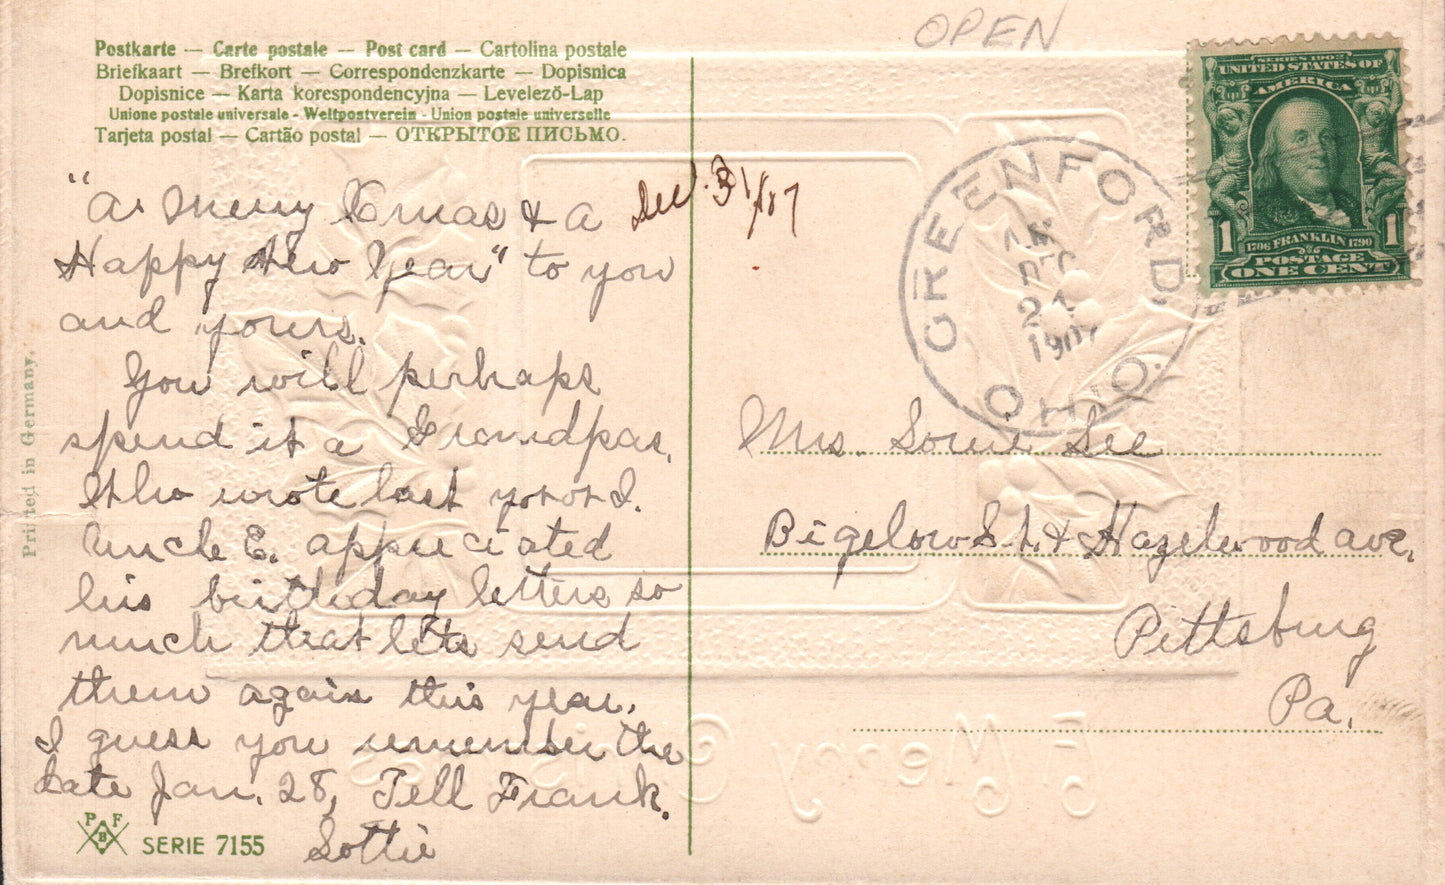 OPEN
Postkarte — Carte postale — Post card — Cartolina postale
Briefkaart — Brefkort — Correspondenzkarte — Dopisnica
Dopisnice — Karta korespondencyjna — Levelező-Lap
Unione postale universale - Weltpostverein - Union postale universelle
Tarjeta postal — Cartão postal — ОТКРЫТОЕ ПИСЬМО.
SERIES 1902
UNITED STATES OF
AMERICA
1 1706 FRANKLIN 1790 1
POSTAGE
ONE CENT
GREENFORD.
DEC
21
1907
OHIO
Dec. 31/07
"A Merry Xmas & a
Happy New Year" to you
and yours.
You will perhaps
spend it a Grandpas.
We wrote last
Uncle E. appreciated
his birthday letters so
much that lets send
them again this year.
I guess you remember the
date Jan. 28, Tell Frank.
Lottie
Mrs. Lee
Bigelow St. & Hazelwood ave.
Pittsburg
Pa.
A Merry Christmas
Printed in Germany.
P F
B
SERIE 7155